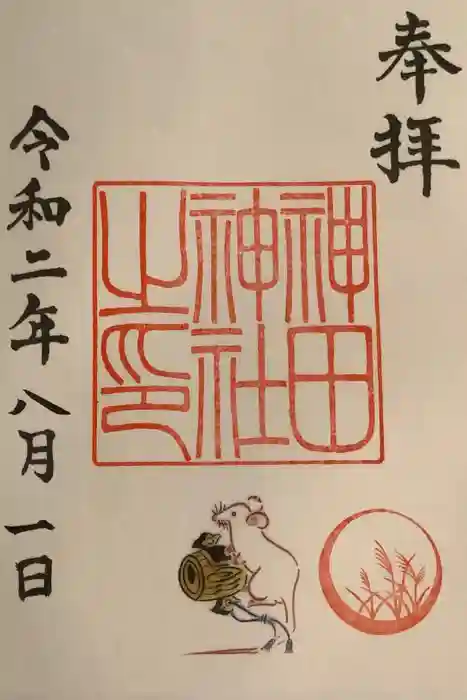 奉拝
神田
神社
之印
令和二年八月一日